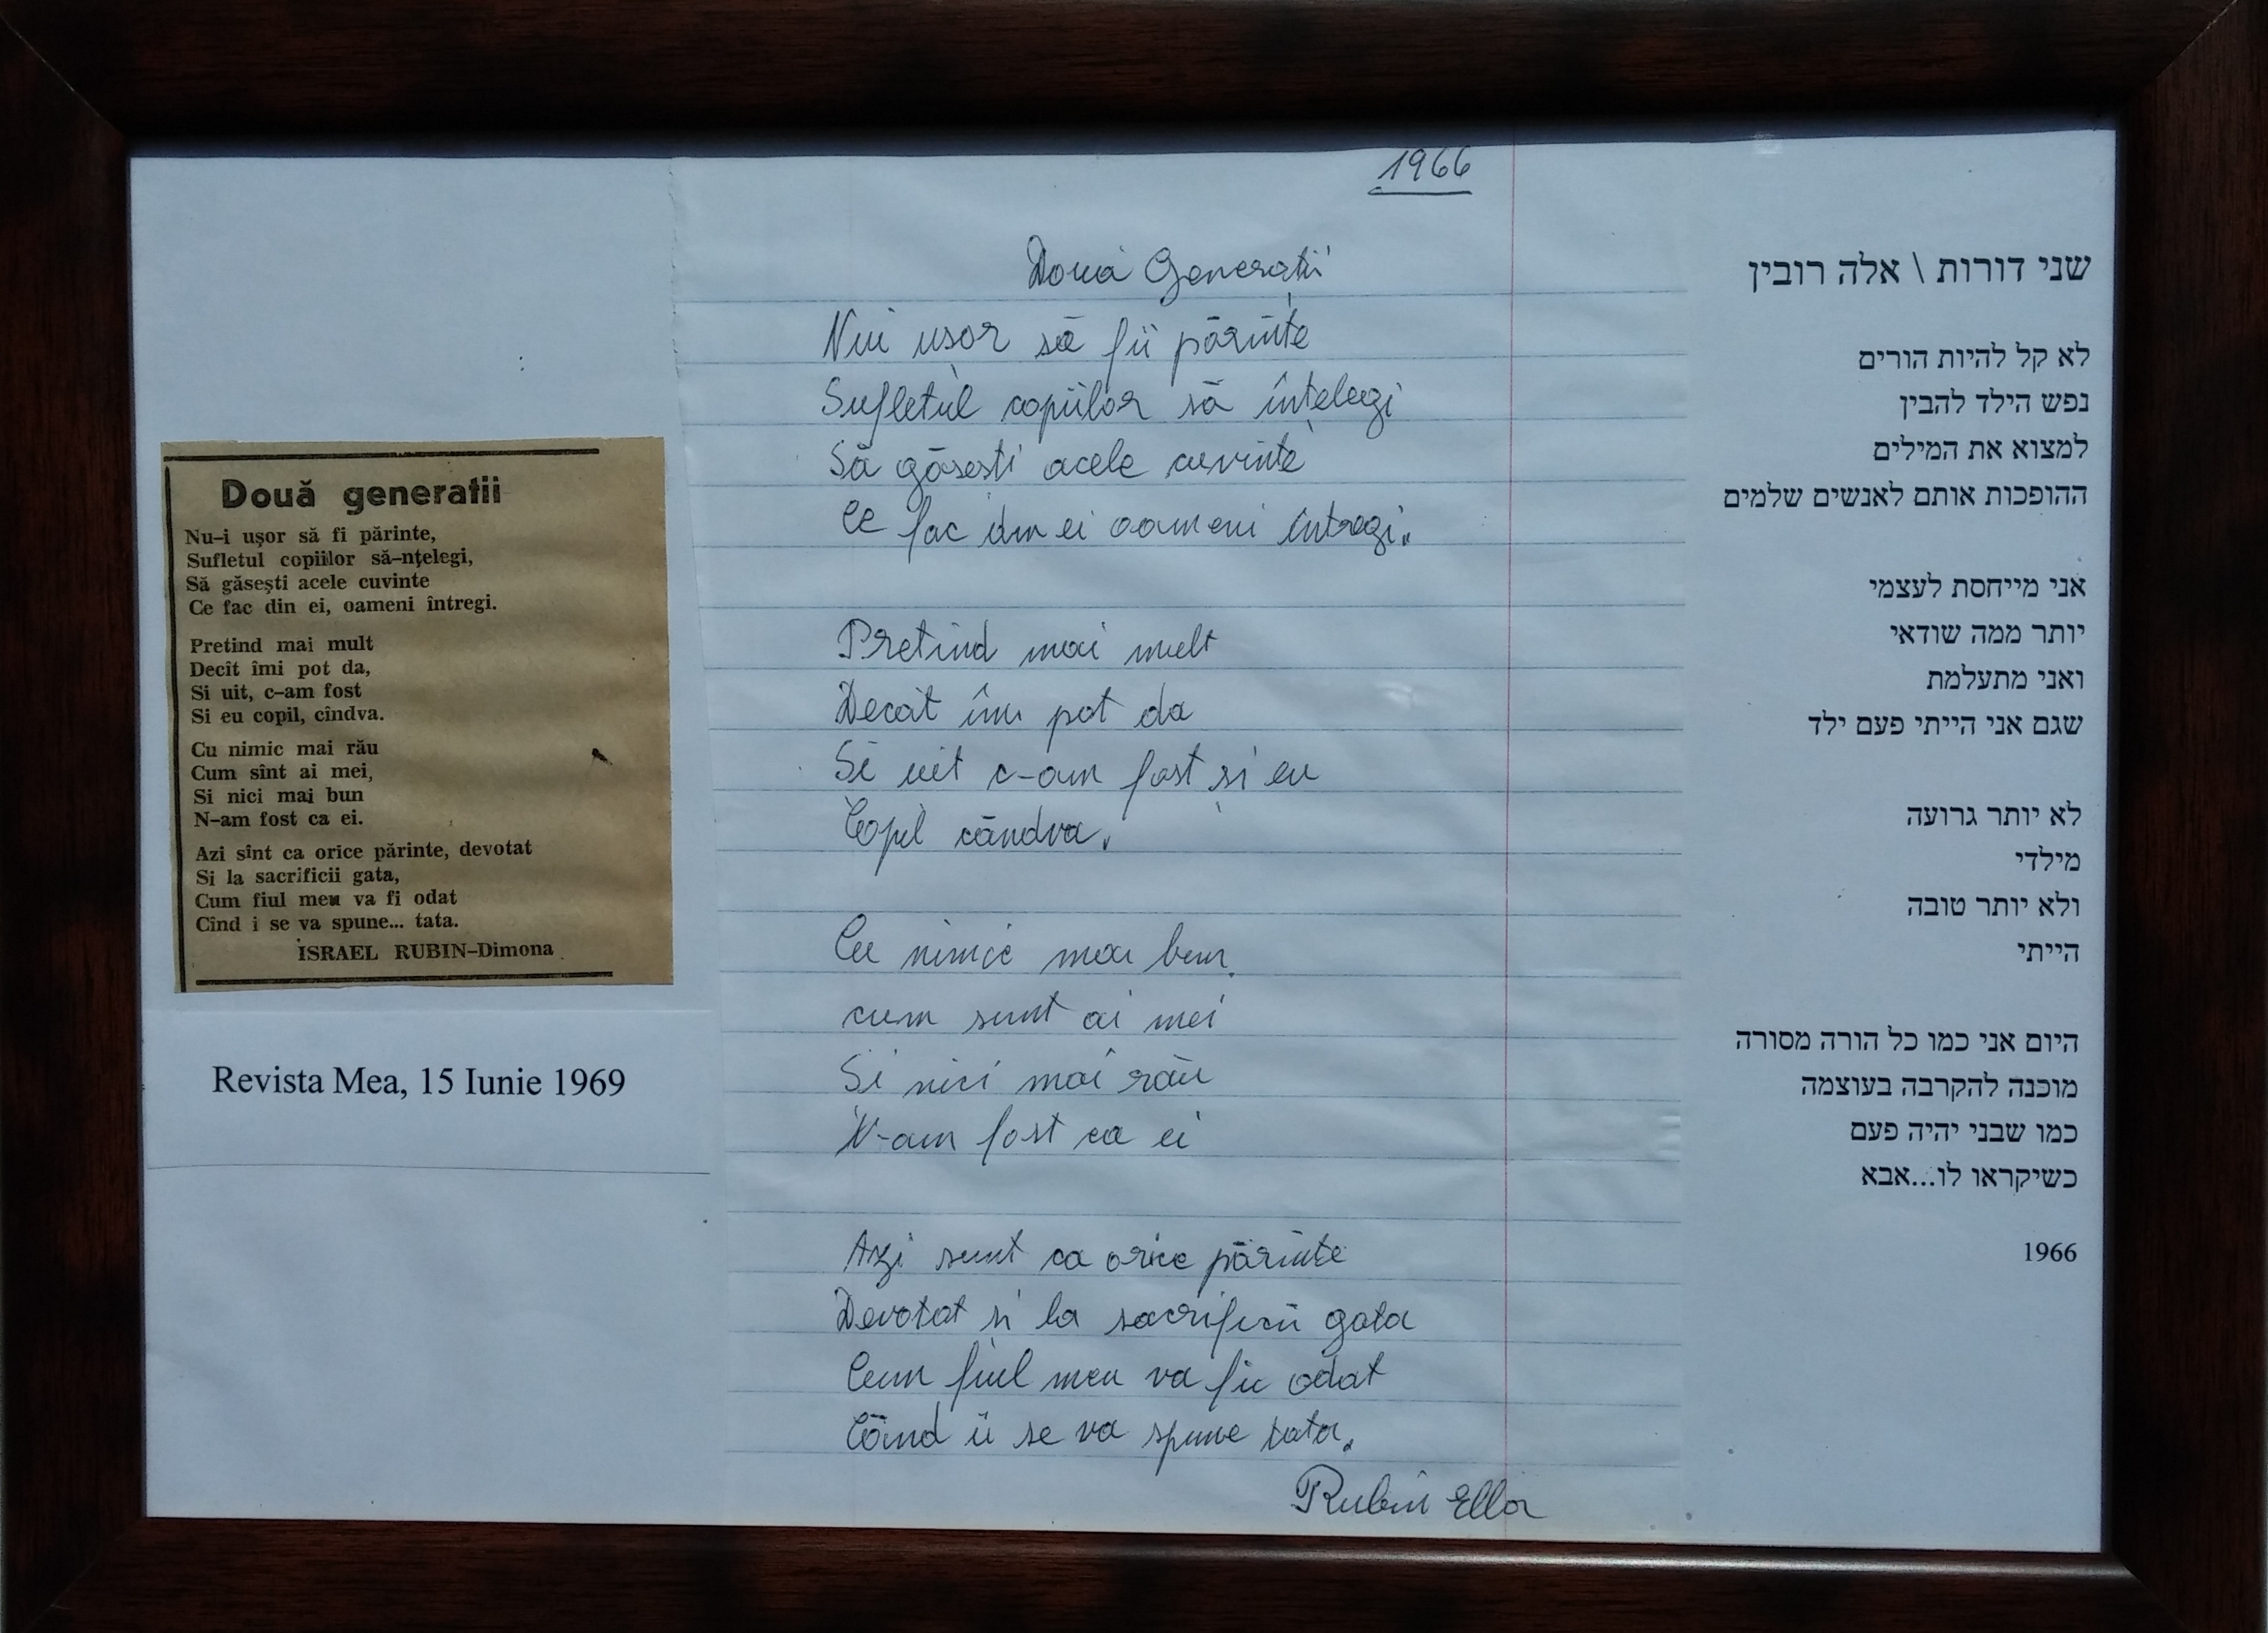 Două generatii
Nu-i uşor să fi părinte,
Sufletul copiilor să-nţelegi,
Să găseşti acele cuvinte
Ce fac din ei, oameni întregi.
Pretind mai mult
Decît îmi pot da,
Si uit, c-am fost
Si eu copil, cîndva.
Cu nimic mai rău
Cum sînt ai mei,
Si nici mai bun
N-am fost ca ei.
Azi sînt ca orice părinte, devotat
Si la sacrificii gata,
Cum fiul meu va fi odat
Cînd i se va spune... tata.
ISRAEL RUBIN-Dimona
Revista Mea, 15 Iunie 1969
1966
Două Generații
Nui usor să fii părinte
Sufletul copiilor să înțelegi
Să găsesti acele cuvinte
Ce fac din ei oameni întregi.
Pretind mai mult
Decât îmi pot da
Si uit c-am fost si eu
Copil cândva.
Cu nimic mai bun
cum sunt ai mei
Si nici mai rău
N-am fost ca ei
Azi sunt ca orice părinte
Devotat si la sacrificii gata
Cum fiul meu va fii odat
Când ii se va spune tata.
Rubin Ella
שני דורות \ אלה רובין
לא קל להיות הורים
נפש הילד להבין
למצוא את המילים
ההופכות אותם לאנשים שלמים
אני מייחסת לעצמי
יותר ממה שודאי
ואני מתעלמת
שגם אני הייתי פעם ילד
לא יותר גרועה
מילדי
ולא יותר טובה
הייתי
היום אני כמו כל הורה מסורה
מוכנה להקרבה בעוצמה
כמו שבני יהיה פעם
כשיקראו לו...אבא
1966